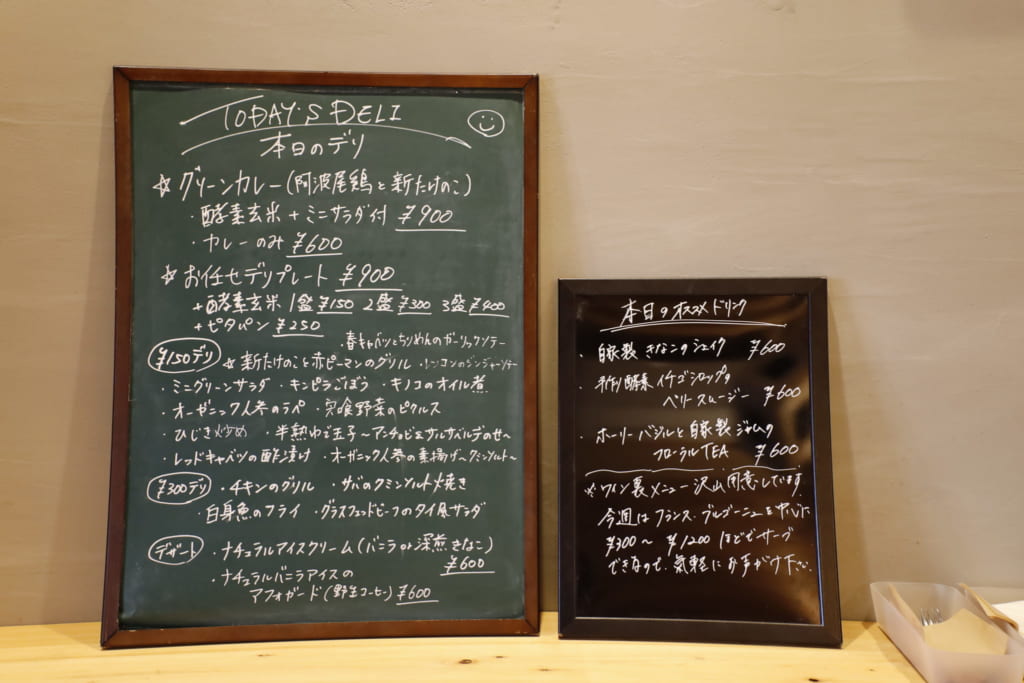 TODAY'S DELI
本日のデリ
☆グリーンカレー(阿波尾鶏と新たけのこ)
・酵素玄米+ミニサラダ付 ¥900
・カレーのみ ¥600
☆お任せデリプレート ¥900
+酵素玄米 1盛¥150 2盛¥300 3盛¥400
+ピタパン ¥250
・春キャベツとちりめんのガーリックソテー
¥150デリ ☆新たけのこと赤ピーマンのグリル ・レンコンのジンジャーソテー
・ミニグリーンサラダ ・キンピラごぼう ・キノコのオイル煮
・オーガニック人参のラペ ・宍喰野菜のピクルス
・ひじき炒め ・半熟ゆで玉子〜アンチョビ&サルサベルデのせ〜
・レッドキャベツの酢漬け ・オーガニック人参の素揚げ〜クミンソルト〜
¥300デリ ・チキンのグリル ・サバのクミンソルト焼き
・白身魚のフライ ・グラスフェッドビーフのタイ風サラダ
デザート ・ナチュラルアイスクリーム(バニラor深煎きなこ)
¥600
・ナチュラルバニラアイスの
アフォガード(野生コーヒー) ¥600
本日のオススメドリンク
・自家製きなこのシェイク ¥600
・手作り酵素イチゴシロップの
ベリースムージー ¥600
・ホーリーバジルと自家製ジャムの
フローラルTEA ¥600
※ワイン裏メニュー沢山用意しています
今週はフランス・ブルゴーニュを中心に
¥300〜¥1200ほどでサーブ
できるので、気軽にお声がけ下さい。